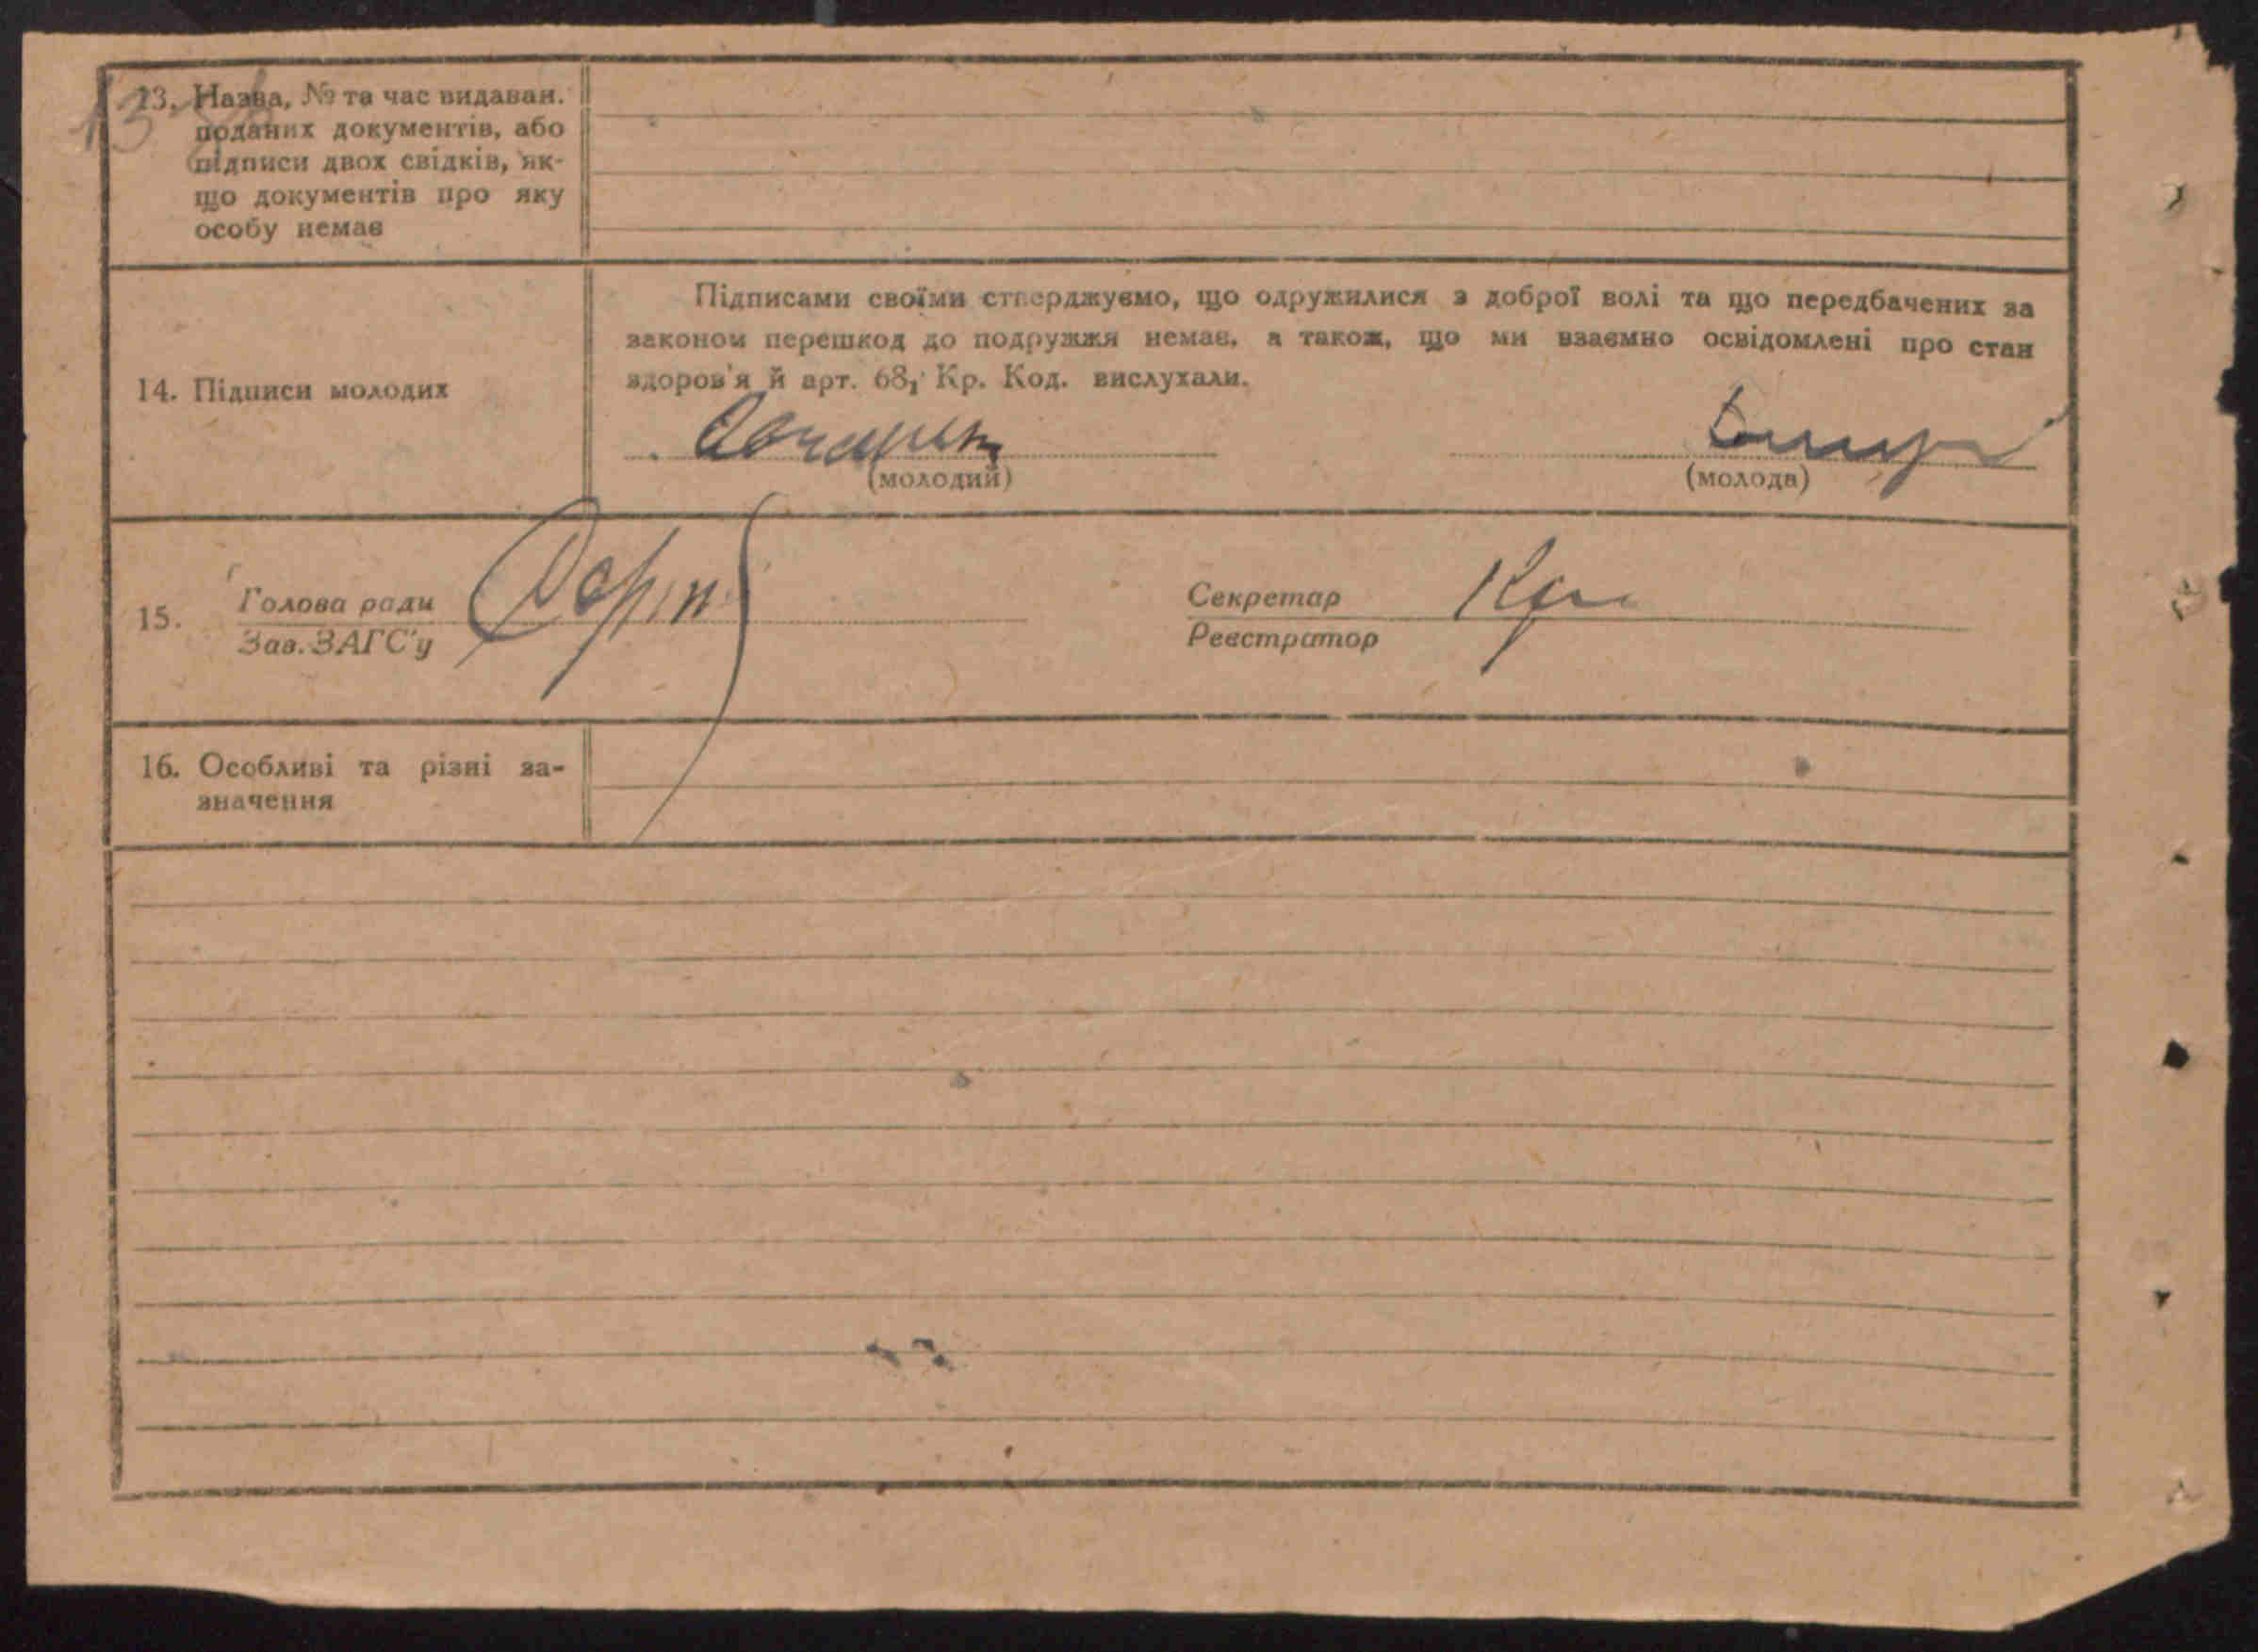 13. Назва, № та час видаван.
поданих документів, або
підписи двох свідків, як-
що документів про яку
особу немає
Підписами своїми стверджуємо, що одружилися з доброї волі та що передбачених за
законом перешкод до подружжя немає, а також, що ми взаємно освідомлені про стан
здоров'я й арт. 68₁ Кр. Код. вислухали.
14. Підписи молодих
(молодий)
(молода)
15.
Голова ради
Зав. ЗАГС'у
Секретар
Реєстратор
16. Особливі та різні за-
значення